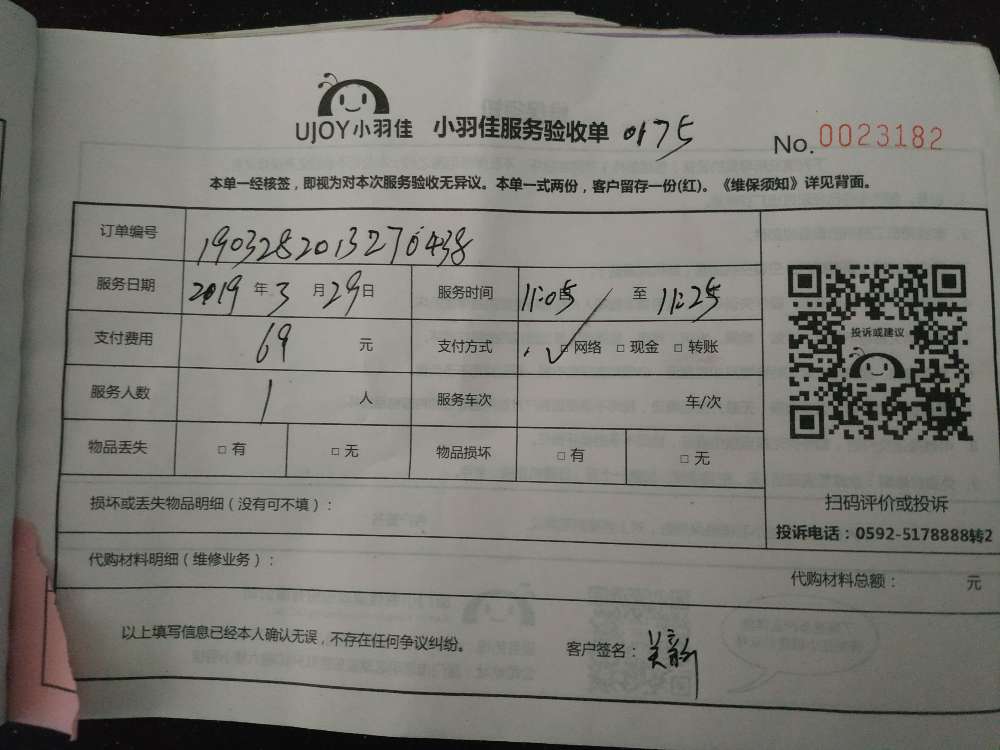 UJOY小羽佳 小羽佳服务验收单 0175
No. 0023182
本单一经核签，即视为对本次服务验收无异议。本单一式两份，客户留存一份(红)。《维保须知》详见背面。
订单编号 1903282013270438
服务日期 2019 年 3 月 29 日 服务时间 11:05 至 11:25
支付费用 69 元 支付方式 ✓ □ 网络 □ 现金 □ 转账
服务人数 1 人 服务车次 车/次
物品丢失 □ 有 □ 无 物品损坏 □ 有 □ 无
投诉或建议
扫码评价或投诉
投诉电话：0592-5178888转2
损坏或丢失物品明细（没有可不填）：
代购材料明细（维修业务）：
代购材料总额： 元
以上填写信息已经本人确认无误，不存在任何争议纠纷。 客户签名：